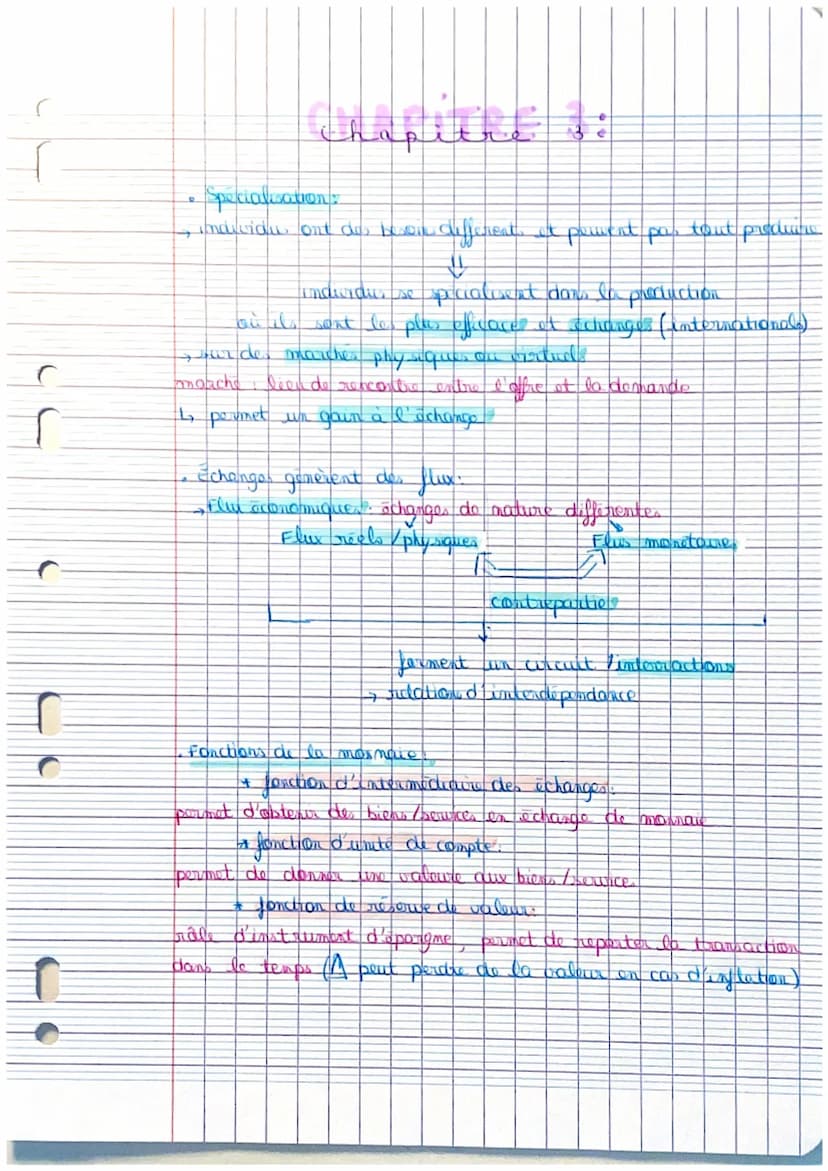 Chapitre 3:
• Spécialisation:
→ individus ont des besoin différents et peuvent pas tout produire
⇓
individus se spécialisent dans la production
où ils sont les plus efficaces et échanges (internationals)
→ sur des marchés physiques ou virtuels
marché : lieu de rencontre entre l'offre et la demande
↳ permet un gain à l'échange
• Échanges génèrent des flux:
→ Flux économiques: échanges de nature différentes
Flux réels / physiques Flux monétaires
contreparties
forment un circuit / interactions
→ relation d'interdépendance
• Fonctions de la monnaie:
* fonction d'intermédiaire des échanges:
permet d'obtenir des biens/services en échange de monnaie
* fonction d'unité de compte:
permet de donner une valeure aux biens / service
* fonction de réserve de valeur:
rôle d'instrument d'épargne, permet de reporter la transaction
dans le temps (⚠ peut perdre de la valeur en cas d'inflation)